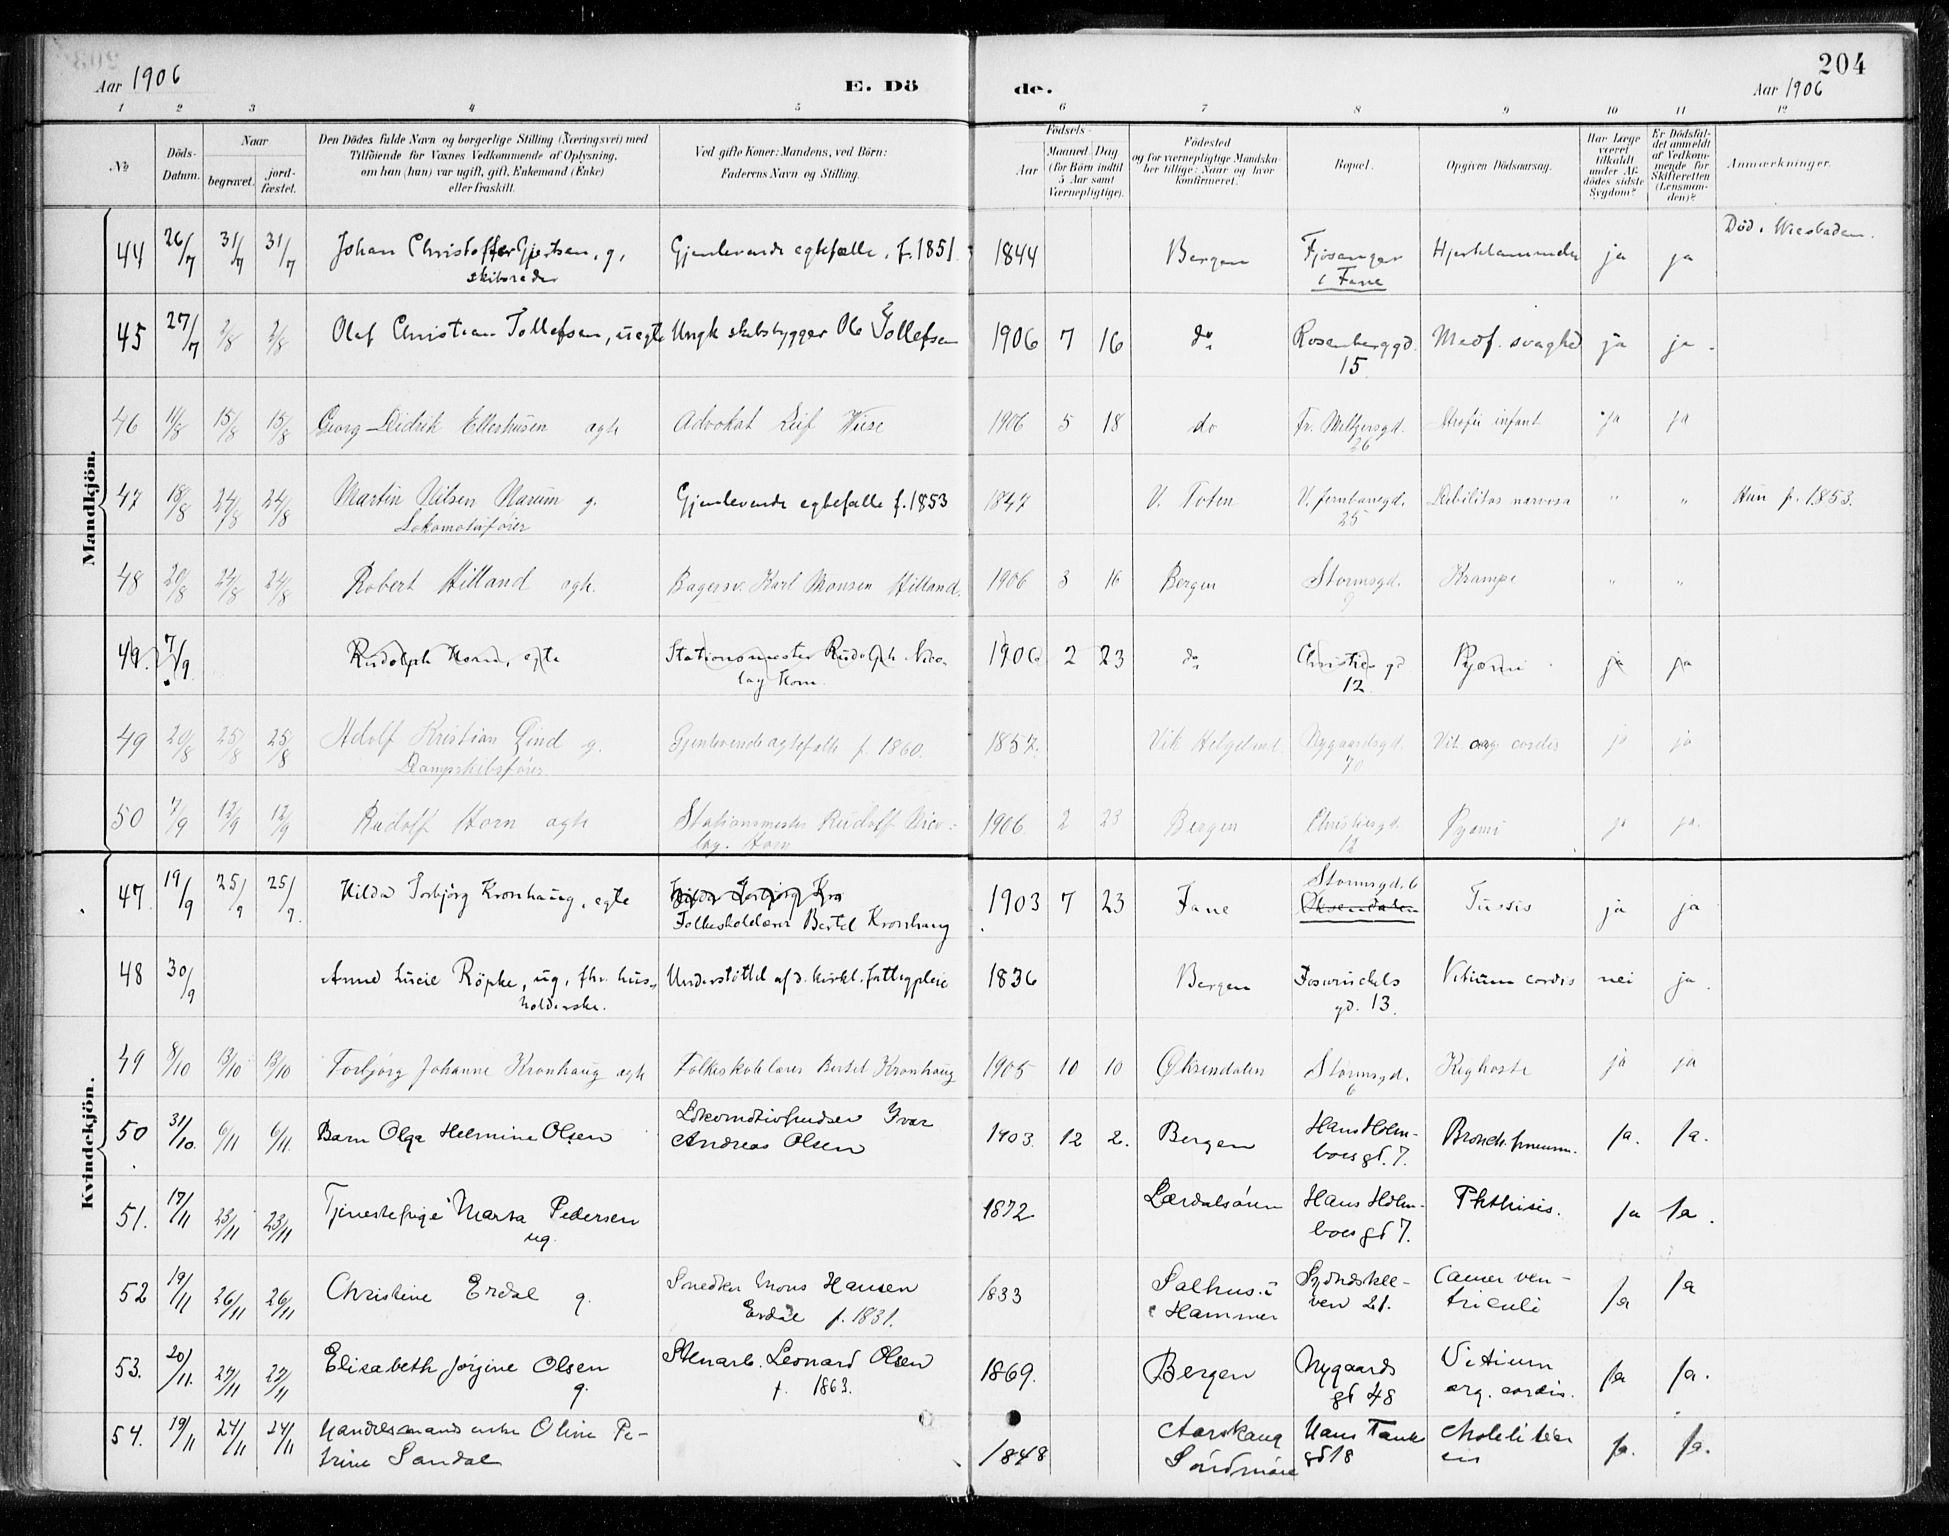 204
Aar 1906
E. Dö
de.
Aar 1906
1 2 3 4 5 6 7 8 9 10 11 12
No
Döds-Datum.
Naar
begravet.
jord-fæstet.
Den Dödes fulde Navn og borgerlige Stilling (Næringsvei) med
Tilföiende for Voxnes Vedkommende af Oplysning,
om han (hun) var ugift, gift, Enkemand (Enke)
eller fraskilt.
Ved gifte Koner: Mandens, ved Börn:
Faderens Navn og Stilling.
Födsels-
Aar
Maaned Dag
(for Börn indtil
5 Aar samt
Værnepligtige).
Födested
og for værnepligtige Mandska-
ber tillige: Naar og hvor
konfirmeret.
Bopæl.
Opgiven Dödsaarsag.
Har Læge
været
tilkaldt
under Af-
dödes sidste
Sygdom?
Er Dödsfal-
det anmeldt
af Vedkom-
mende for
Skifteretten
(Lensman-
den)?
Anmærkninger.
Mandkjön.
44 26/7 31/7 31/7 Johan Christoffer Gjertsen, g, Gjenlevende egtefælle, f. 1851. 1844 Bergen Fjösanger ja ja Död i Wiesbaden.
skibsreder i Fane
45 27/7 2/8 2/8 Olaf Christian Tollefsen, uegte Ungk skibsbygger Ole Tollefsen 1906 7 16 do Rosenberggd. Medf. svaghed ja ja.
15
46 11/8 15/8 15/8 Georg Didrik Ellerhusen egte Advokat Leif Wiese 1906 5 18 do Fr. Meltzersgd. infant ja ja
26
47 18/8 24/8 24/8 Martin Nilsen Narum g. Gjenlevende egtefælle f. 1853 1847 V. Toten V. Jernbanegd. Debilitas nervosa " " Hun f. 1853.
Lokomotivfører 25
48 20/8 24/8 24/8 Robert Hilland egte. Bagersv. Karl Monsen Hilland. 1906 3 16 Bergen Stormsgd. Krampe " "
9
49. 7/9 Rudolph Horn, egte Stationsmester Rudolph Nico- 1906 2 23 do Christies gd Pyæmi ja ja
lay Horn. 12
49 20/8 25/8 25/8 Adolf Kristian Lind g. Gjenlevende egtefælle f. 1860. 1857. Vik Helgeland Nygaardsgd. Vit. org. cordis ja ja
Dampskibsfører 70
50 7/9 12/9 12/9 Rudolf Horn egte Stationsmester Rudolf Nico- 1906 2 23 Bergen Christiesgd. Pyæmi ja ja.
lay Horn 12
Kvindekjön.
47 19/9 25/9 25/9 Hilda Torbjörg Kronhaug, egte Hilda Torbjörg Kro 1903 7 23 Fane Stormsgd. 6 Tussis ja ja
Folkeskolelærer Bertel Kronhaug Öksendalen
48 30/9 Anne Lucie Röpke, ug, fhv. hus- Understöttet af d. kirkl. fattigpleie 1836 Bergen Vitium cordis nei ja.
holderske. gd. 13
49 8/10 13/10 13/10 Torbjørg Johanne Kronhaug egte Folkeskolelærer Bertel Kronhaug 1905 10 10 Øksendalen Stormsgd. Kighoste ja ja
6
50 31/10. 6/11 6/11. Barn Olga Helmine Olsen Lokomotivpudser Ivar 1903. 12 2. Bergen Hans Holm- Bronch. pneum. Ja. Ja.
Andreas Olsen boes gt. 7.
51. 17/11 23/11 23/11 Tjenestepige Marta Pedersen 1872 Lærdalsören Hans Holm- Phthisis. Ja Ja.
ug. boes gt 7.
52 19/11 26/11 26/11 Christine Erdal g. Snedker Mons Hansen 1833 Salhus i Sydneskle- Cancer ven- Ja Ja
Erdal f. 1831. Hammer ven 21. triculi
53. 20/11. 27/11 27/11 Elisabeth Jörgine Olsen Stenarb. Leonard Olsen 1869. Bergen Nygaards Vitium Ja Ja.
g. f. 1863. gt 48 org. cordis.
54. 19/11 24/11 24/11 Handelsmands enke Oline Pe- 1848 Aarskaug Hans Tanks Ja. Ja.
trine Sandal Söndmöre gt 18